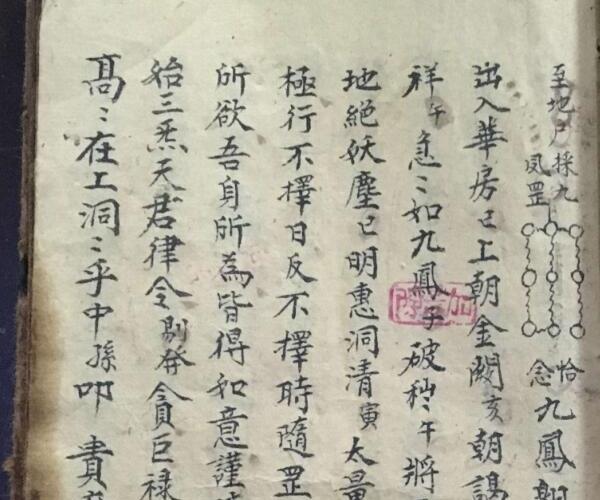 至地户採九
凤罡
恰
念
九鳳
出入華房已上朝金闕亥朝謁
祥午急〻如九鳳子破穢〻午將
地絕妖塵已明惠洞清寅太量
極行不擇日反不擇時隨罡
所欲吾身所為皆得如意謹
始三炁天君律令劄發貪巨祿
高〻在上洞〻乎中孫叩貴